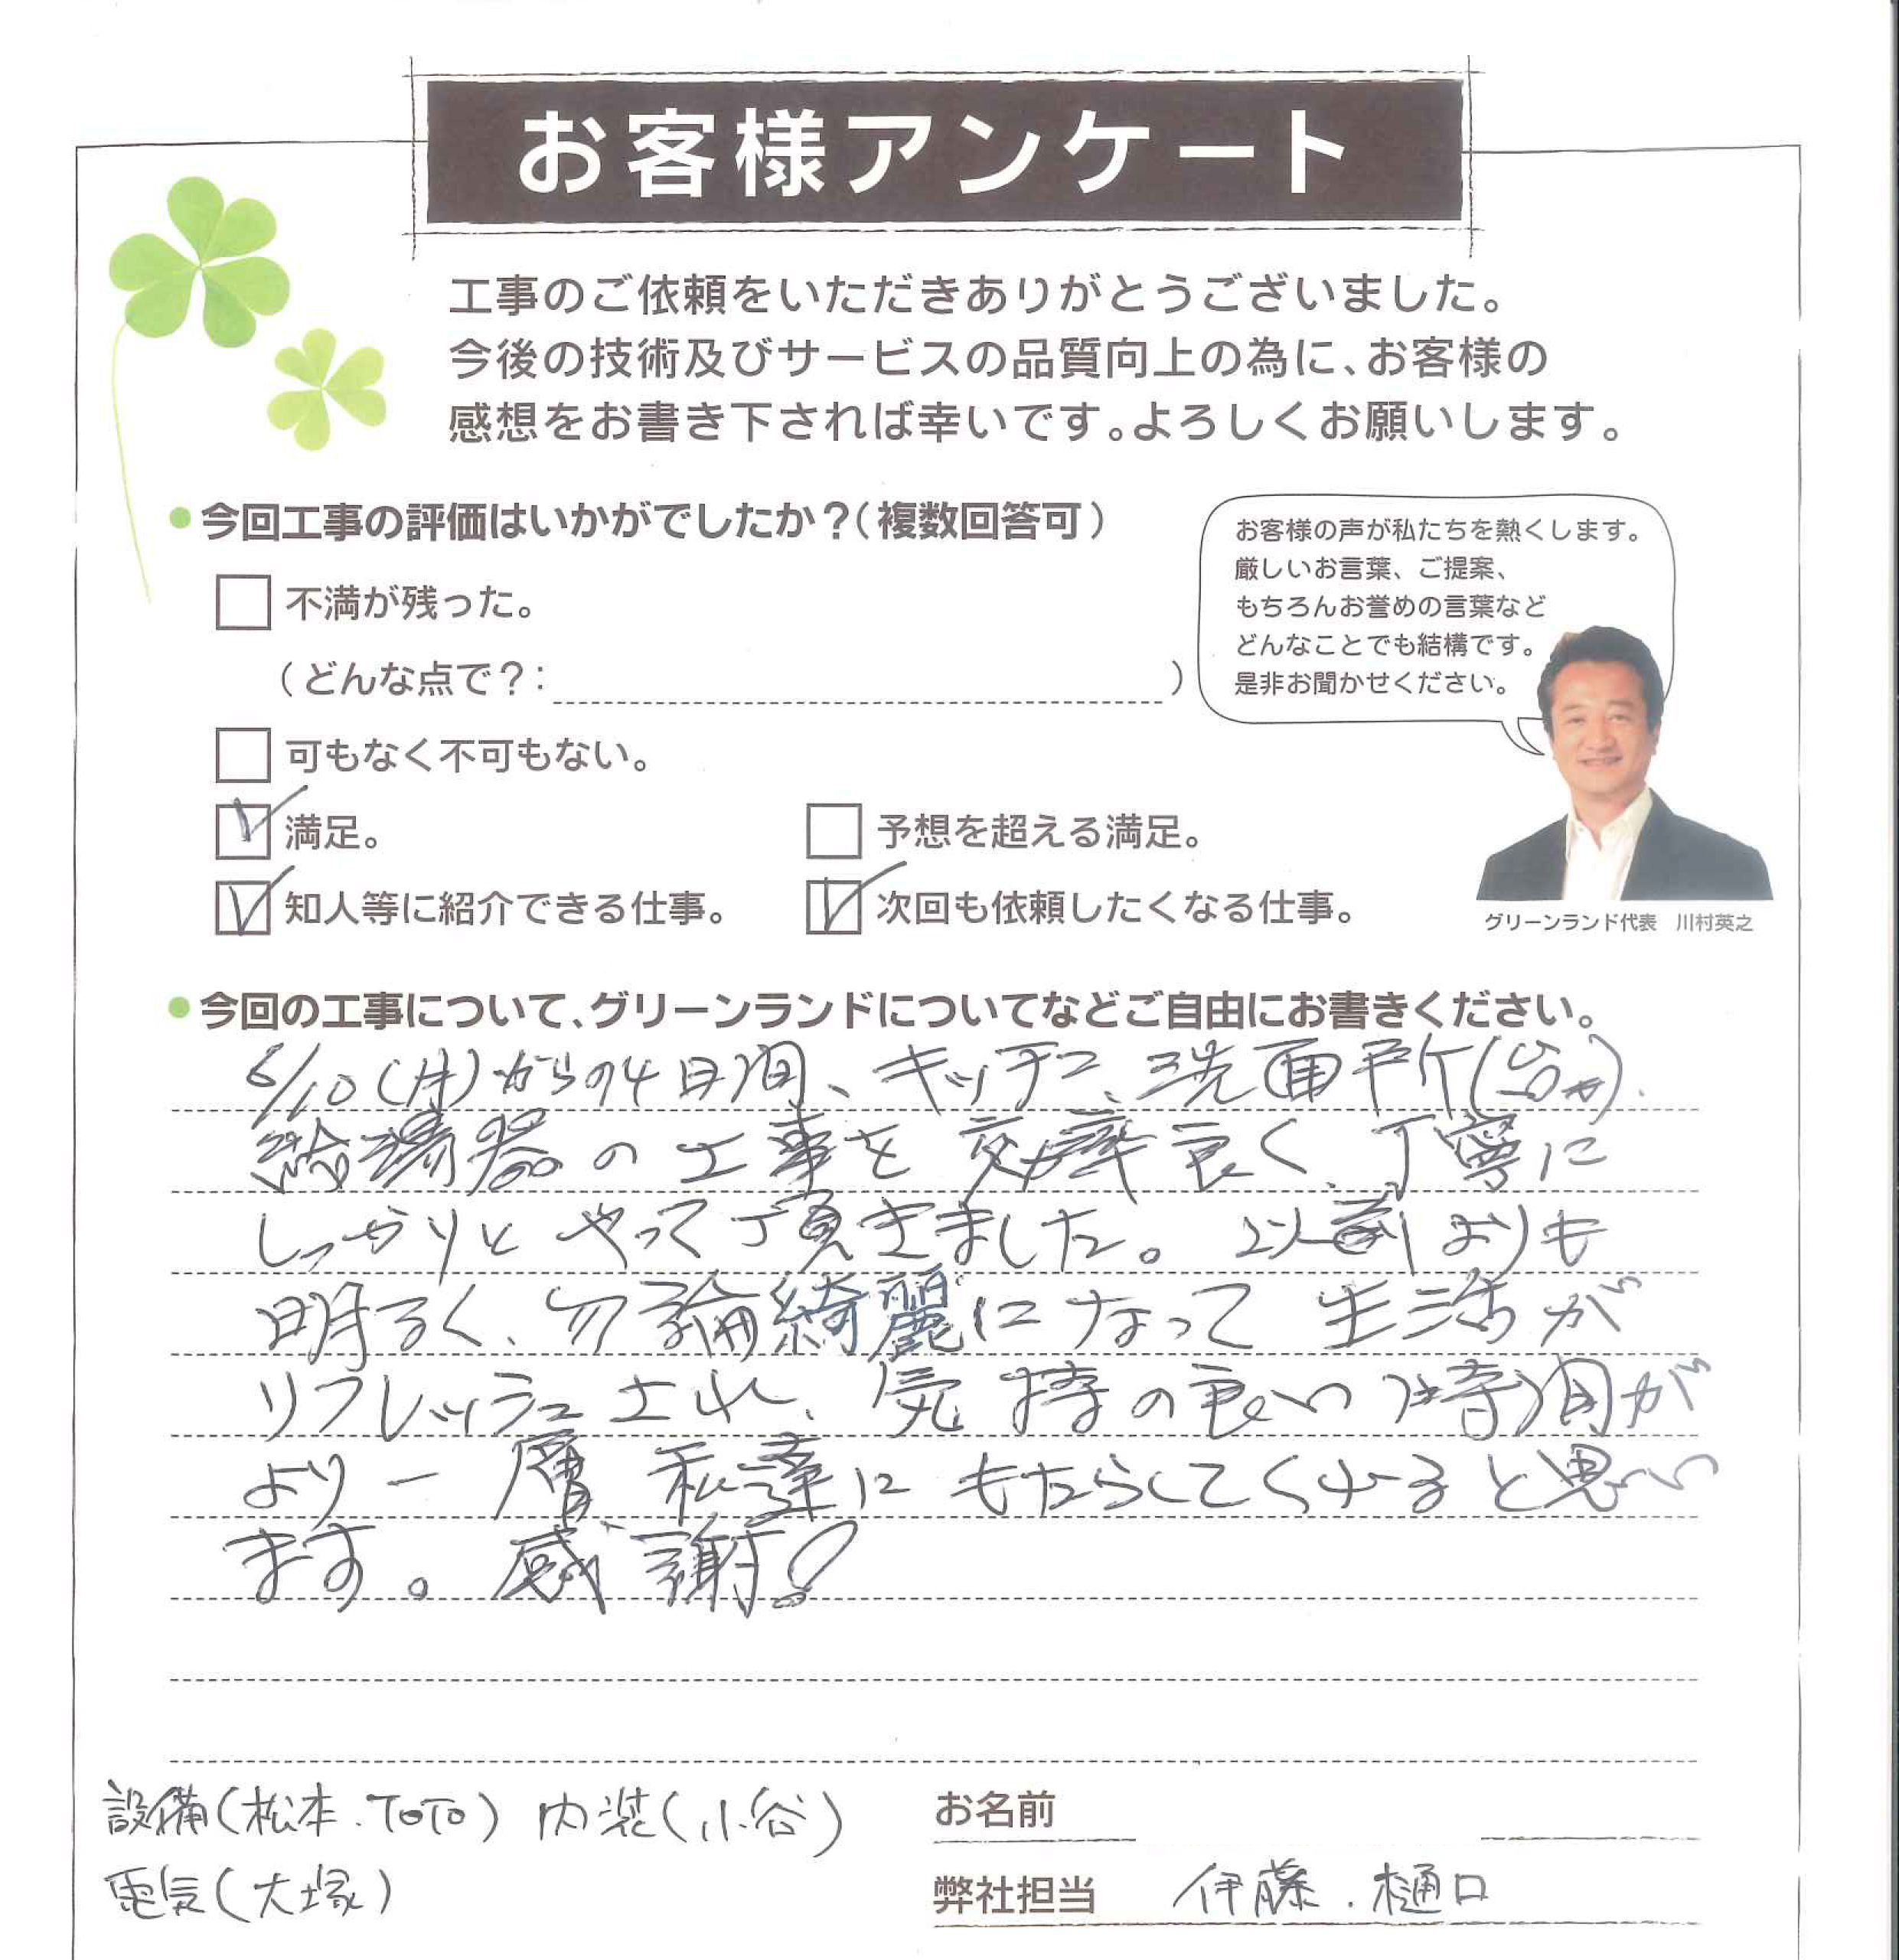 お客様アンケート
工事のご依頼をいただきありがとうございました。
今後の技術及びサービスの品質向上の為に、お客様の
感想をお書き下されば幸いです。よろしくお願いします。
今回工事の評価はいかがでしたか？（複数回答可）
不満が残った。
（どんな点で？：　）
可もなく不可もない。
満足。
予想を超える満足。
知人等に紹介できる仕事。
次回も依頼したくなる仕事。
お客様の声が私たちを熱くします。
厳しいお言葉、ご提案、
もちろんお誉めの言葉など
どんなことでも結構です。
是非お聞かせください。
グリーンランド代表　川村英之
今回の工事について、グリーンランドについてなどご自由にお書きください。
6/10(月)からの4日間、キッチン、洗面所(台)、
給湯器の工事を効率良く、丁寧に
しっかりとやって頂きました。以前よりも
明るく、勿論綺麗になって生活が
リフレッシュされ、気持の良い時間が
より一層私達にもたらしてくれると思い
ます。感謝！
設備(松本.TOTO) 内装(小谷)
電気(大塚)
お名前
弊社担当　伊藤.樋口